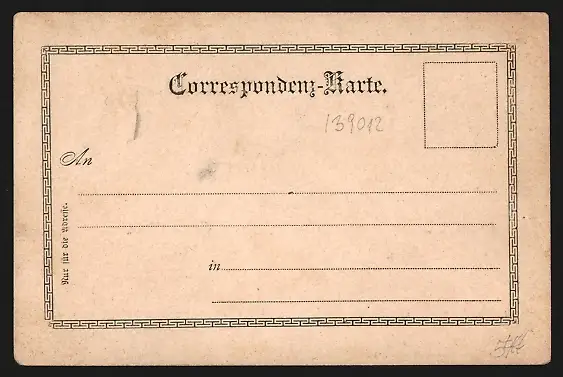 Correspondenz-Karte.
139012
An
in
Nur für die Adresse.